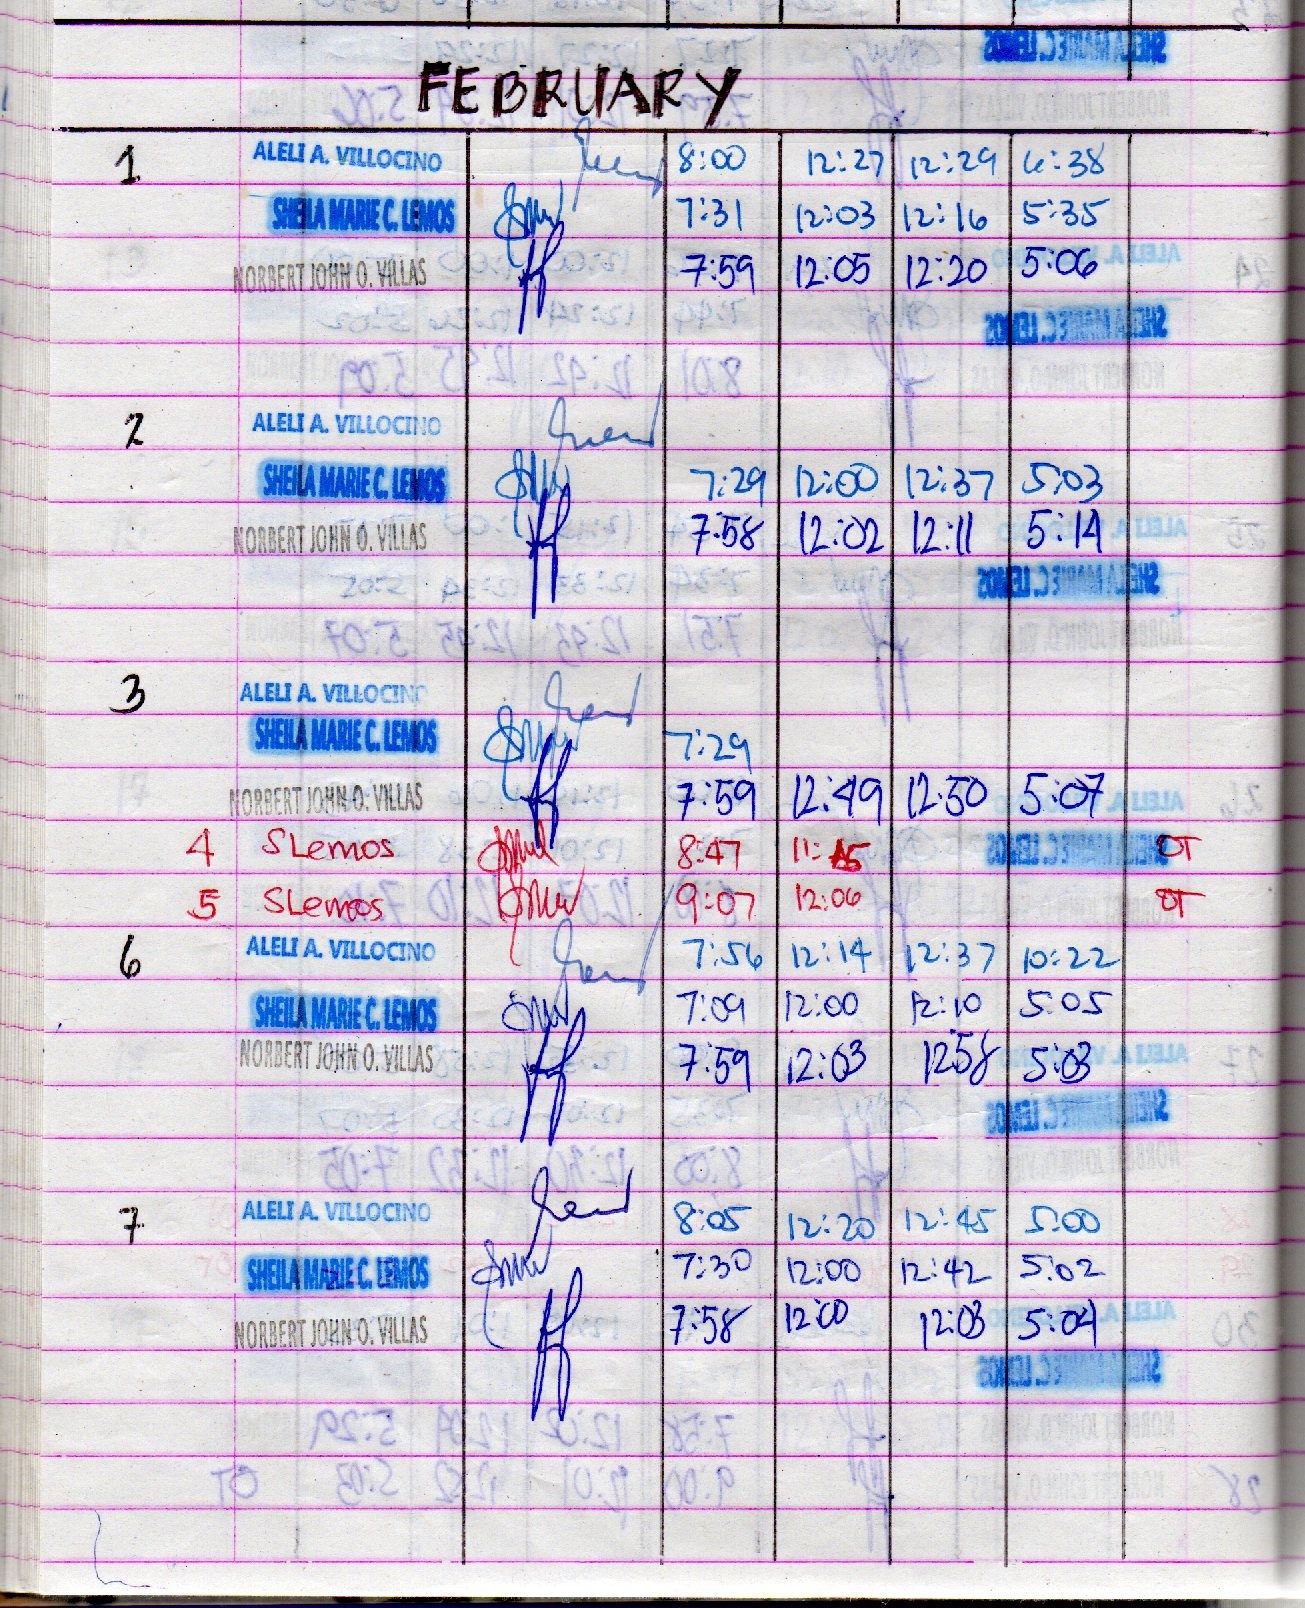 FEBRUARY
1 ALELI A. VILLOCINO 8:00 12:27 12:29 6:38
SHEILA MARIE C. LEMOS 7:31 12:03 12:16 5:35
NORBERT JOHN O. VILLAS 7:59 12:05 12:20 5:06
2 ALELI A. VILLOCINO
SHEILA MARIE C. LEMOS 7:29 12:00 12:37 5:03
NORBERT JOHN O. VILLAS 7:58 12:02 12:11 5:14
3 ALELI A. VILLOCINO
SHEILA MARIE C. LEMOS 7:29
NORBERT JOHN O. VILLAS 7:59 12:49 12:50 5:07
4 SLemos 8:47 11:15 OT
5 SLemos 9:07 12:06 OT
6 ALELI A. VILLOCINO 7:56 12:14 12:37 10:22
SHEILA MARIE C. LEMOS 7:09 12:00 12:10 5:05
NORBERT JOHN O. VILLAS 7:59 12:03 1258 5:03
7 ALELI A. VILLOCINO 8:05 12:20 12:45 5:00
SHEILA MARIE C. LEMOS 7:30 12:00 12:42 5:02
NORBERT JOHN O. VILLAS 7:58 12:00 12:03 5:04